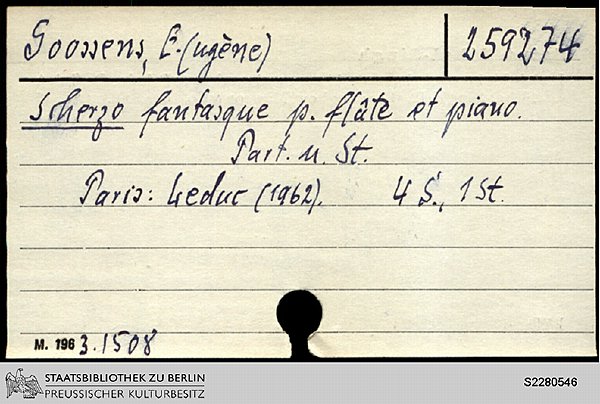 Goossens, E.(ugène) 259274
Scherzo fantasque p. flûte et piano.
Part. u. St.
Paris: Leduc (1962). 4 S., 1 St.
M. 1963.1508
STAATSBIBLIOTHEK ZU BERLIN
PREUSSISCHER KULTURBESITZ
S2280546